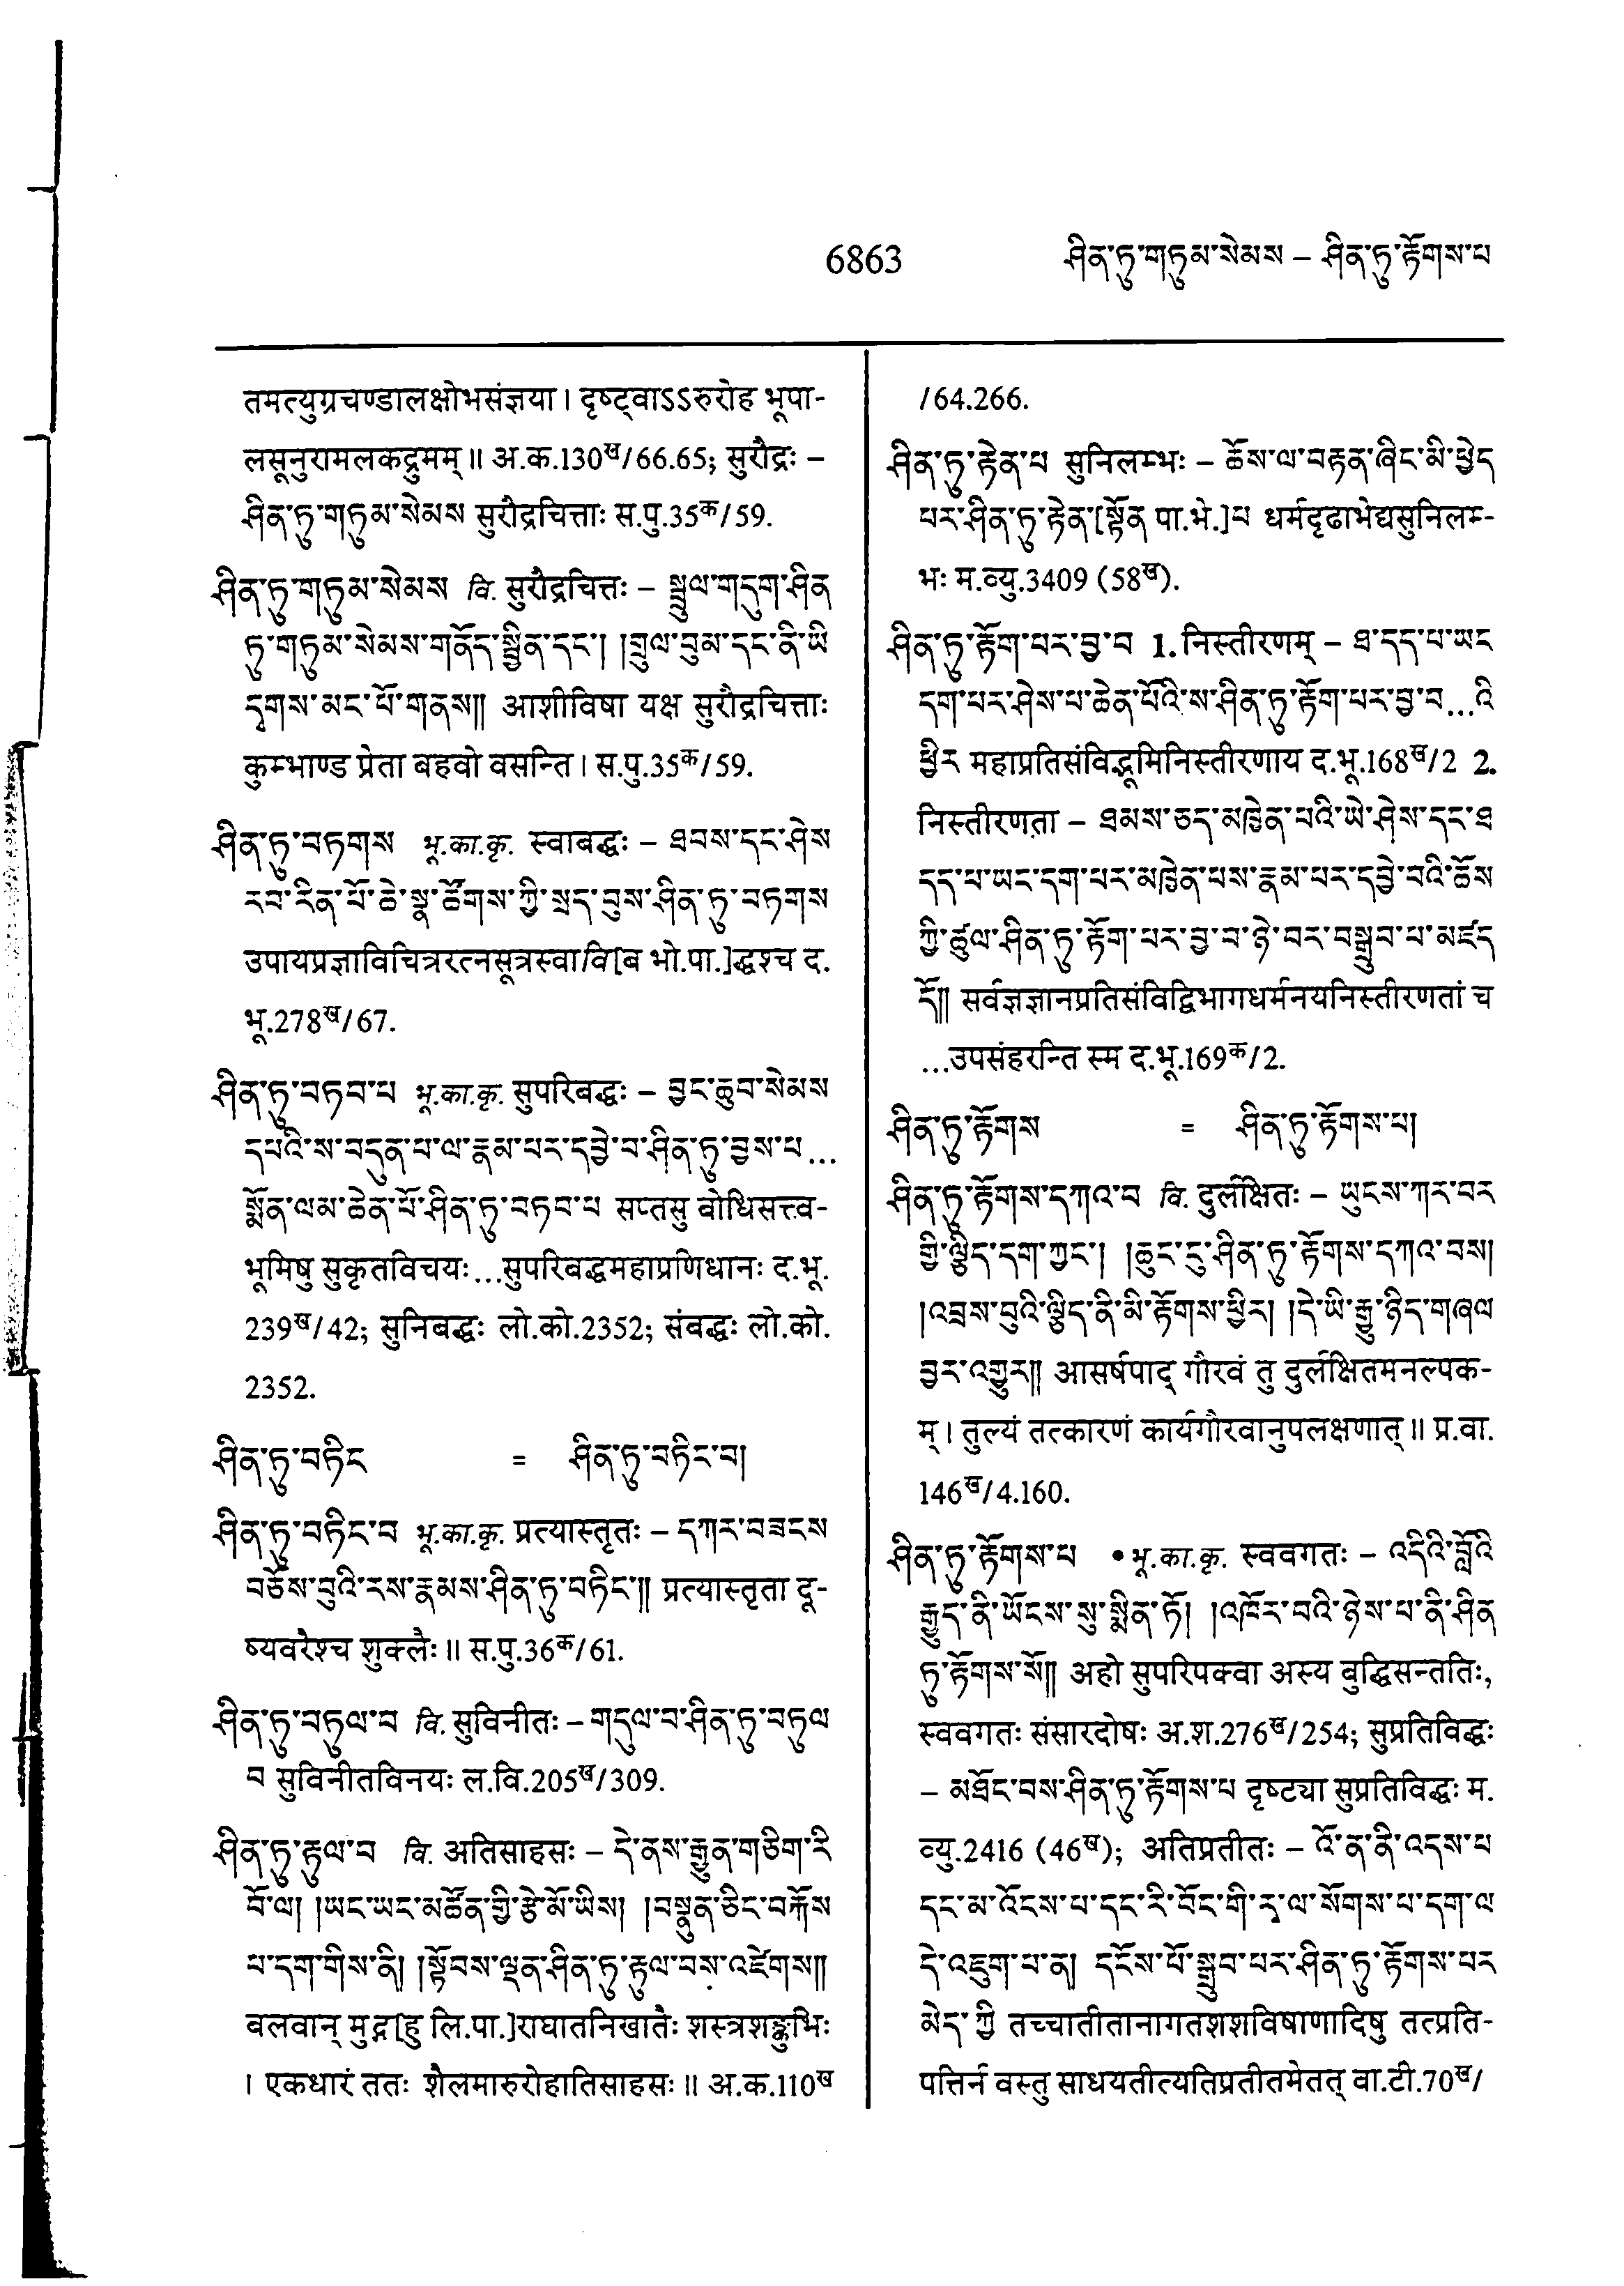 6863 ཤིན་ཏུ་གཏུམ་སེམས – ཤིན་ཏུ་རྟོགས་པ
तमत्युग्रचण्डालक्षोभसंज्ञया। दृष्ट्वाऽऽरुरोह भूपा-
लसूनुरामलकद्रुमम्॥ अ.क.130ख/66.65; सुरौद्रः –
ཤིན་ཏུ་གཏུམ་སེམས सुरौद्रचित्ताः स.पु.35क/59.
ཤིན་ཏུ་གཏུམ་སེམས वि. सुरौद्रचित्तः – སྦྲུལ་གདུག་ཤིན
ཏུ་གཏུམ་སེམས་གནོད་སྦྱིན་དང་། །གྲུལ་བུམ་དང་ནི་ཡི
དྭགས་མང་པོ་གནས༎ आशीविषा यक्ष सुरौद्रचित्ताः
कुम्भाण्ड प्रेता बहवो वसन्ति। स.पु.35क/59.
ཤིན་ཏུ་བཏགས भू.का.कृ. स्वाबद्धः – ཐབས་དང་ཤེས
རབ་རིན་པོ་ཆེ་སྣ་ཚོགས་ཀྱི་སྲད་བུས་ཤིན་ཏུ་བཏགས
उपायप्रज्ञाविचित्ररत्नसूत्रस्वावि[ब भो.पा.]द्धश्च द.
भू.278ख/67.
ཤིན་ཏུ་བཏབ་པ भू.का.कृ. सुपरिबद्धः – བྱང་ཆུབ་སེམས
དཔའི་ས་བདུན་པ་ལ་རྣམ་པར་དབྱེ་བ་ཤིན་ཏུ་བྱས་པ...
སྨོན་ལམ་ཆེན་པོ་ཤིན་ཏུ་བཏབ་པ सप्तसु बोधिसत्त्व-
भूमिषु सुकृतविचयः...सुपरिबद्धमहाप्रणिधानः द.भू.
239ख/42; सुनिबद्धः लो.को.2352; संबद्धः लो.को.
2352.
ཤིན་ཏུ་བཏིང = ཤིན་ཏུ་བཏིང་བ།
ཤིན་ཏུ་བཏིང་བ भू.का.कृ. प्रत्यास्तृतः – དཀར་བཟངས
བཅོས་བུའི་རས་རྣམས་ཤིན་ཏུ་བཏིང་༎ प्रत्यास्तृता दू-
ष्यवरैश्च शुक्लैः॥ स.पु.36क/61.
ཤིན་ཏུ་བཏུལ་བ वि. सुविनीतः – གདུལ་བ་ཤིན་ཏུ་བཏུལ
བ सुविनीतविनयः ल.वि.205ख/309.
ཤིན་ཏུ་རྟུལ་བ वि. अतिसाहसः – དེ་ནས་རྒྱུན་གཅིག་རི
བོ་ལ། །ཡང་ཡང་མཚོན་གྱི་རྩེ་མོ་ཡིས། །བསྣུན་ཅིང་བརྐོས
པ་དག་གིས་ནི། །སྟོབས་ལྡན་ཤིན་ཏུ་རྟུལ་བས་འཛེགས༎
बलवान् मुद्ग[हु लि.पा.]राघातनिखातैः शस्त्रशङ्कुभिः
। एकधारं ततः शैलमारुरोहातिसाहसः॥ अ.क.110ख
/64.266.
ཤིན་ཏུ་རྟེན་པ सुनिलम्भः – ཆོས་ལ་བརྟན་ཞིང་མི་ཕྱེད
པར་ཤིན་ཏུ་རྟེན་[སྟོན पा.भे.]པ धर्मदृढाभेद्यसुनिलम्-
भः म.व्यु.3409 (58ख).
ཤིན་ཏུ་རྟོག་པར་བྱ་བ 1. निस्तीरणम् – ཐ་དད་པ་ཡང
དག་པར་ཤེས་པ་ཆེན་པོའི་ས་ཤིན་ཏུ་རྟོག་པར་བྱ་བ...འི
ཕྱིར महाप्रतिसंविद्भूमिनिस्तीरणाय द.भू.168ख/2 2.
निस्तीरणता – ཐམས་ཅད་མཁྱེན་པའི་ཡེ་ཤེས་དང་ཐ
དད་པ་ཡང་དག་པར་མཁྱེན་པས་རྣམ་པར་དབྱེ་བའི་ཆོས
ཀྱི་ཚུལ་ཤིན་ཏུ་རྟོག་པར་བྱ་བ་ཉེ་བར་བསྒྲུབ་པ་མཛད
དོ༎ सर्वज्ञज्ञानप्रतिसंविद्विभागधर्मनयनिस्तीरणतां च
...उपसंहरन्ति स्म द.भू.169क/2.
ཤིན་ཏུ་རྟོགས = ཤིན་ཏུ་རྟོགས་པ།
ཤིན་ཏུ་རྟོགས་དཀའ་བ वि. दुर्लक्षितः – ཡུངས་ཀར་བར
གྱི་ལྕིད་དག་ཀྱང་། །ཆུང་ངུ་ཤིན་ཏུ་རྟོགས་དཀའ་བས།
།འབྲས་བུའི་ལྕིད་ནི་མི་རྟོགས་ཕྱིར། །དེ་ཡི་རྒྱུ་ཉིད་གཞལ
བྱར་འགྱུར༎ आसर्षपाद् गौरवं तु दुर्लक्षितमनल्पक-
म्। तुल्यं तत्कारणं कार्यगौरवानुपलक्षणात्॥ प्र.वा.
146ख/4.160.
ཤིན་ཏུ་རྟོགས་པ • भू.का.कृ. स्ववगतः – འདིའི་བློའི
རྒྱུད་ནི་ཡོངས་སུ་སྨིན་ཏོ། །འཁོར་བའི་ཉེས་པ་ནི་ཤིན
ཏུ་རྟོགས་སོ༎ अहो सुपरिपक्वा अस्य बुद्धिसन्ततिः,
स्ववगतः संसारदोषः अ.श.276ख/254; सुप्रतिविद्धः
– མཐོང་བས་ཤིན་ཏུ་རྟོགས་པ दृष्ट्या सुप्रतिविद्धः म.
व्यु.2416 (46ख); अतिप्रतीतः – འོ་ན་ནི་འདས་པ
དང་མ་འོངས་པ་དང་རི་བོང་གི་རྭ་ལ་སོགས་པ་དག་ལ
དེ་འཇུག་པ་ན། དངོས་པོ་སྒྲུབ་པར་ཤིན་ཏུ་རྟོགས་པར
མེད་ཀྱི तच्चातीतानागतशशविषाणादिषु तत्प्रति-
पत्तिर्न वस्तु साधयतीत्यतिप्रतीतमेतत् वा.टी.70ख/